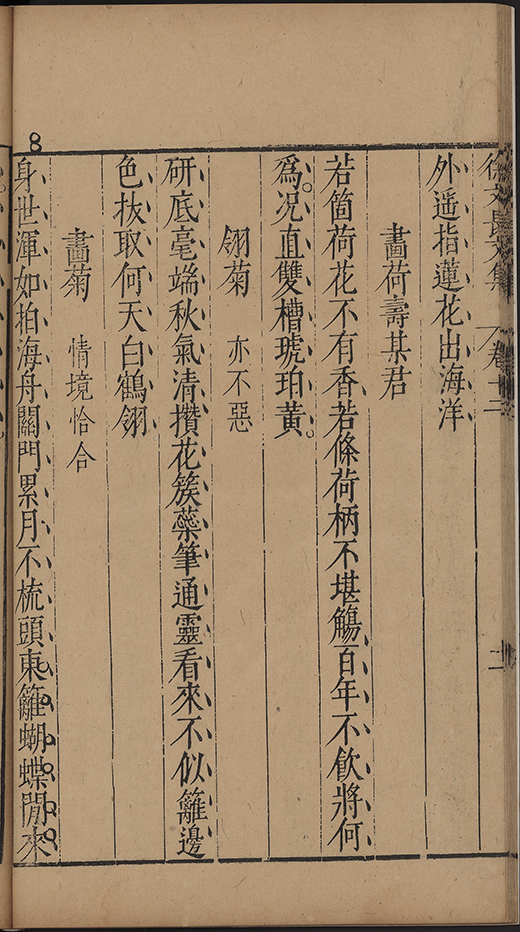 徐文長文集 卷十二
外遥指蓮花出海洋
畵荷壽某君
若箇荷花不有香若條荷柄不堪觴百年不飲將何
爲况直雙槽琥珀黃
翎菊 亦不惡
研底毫端秋氣清攢花簇蘂筆通靈看來不似籬邊
色抜取何天白鶴翎
畵菊 情境恰合
身世渾如拍海舟關門累月不梳頭東籬蝴蝶閒來
8